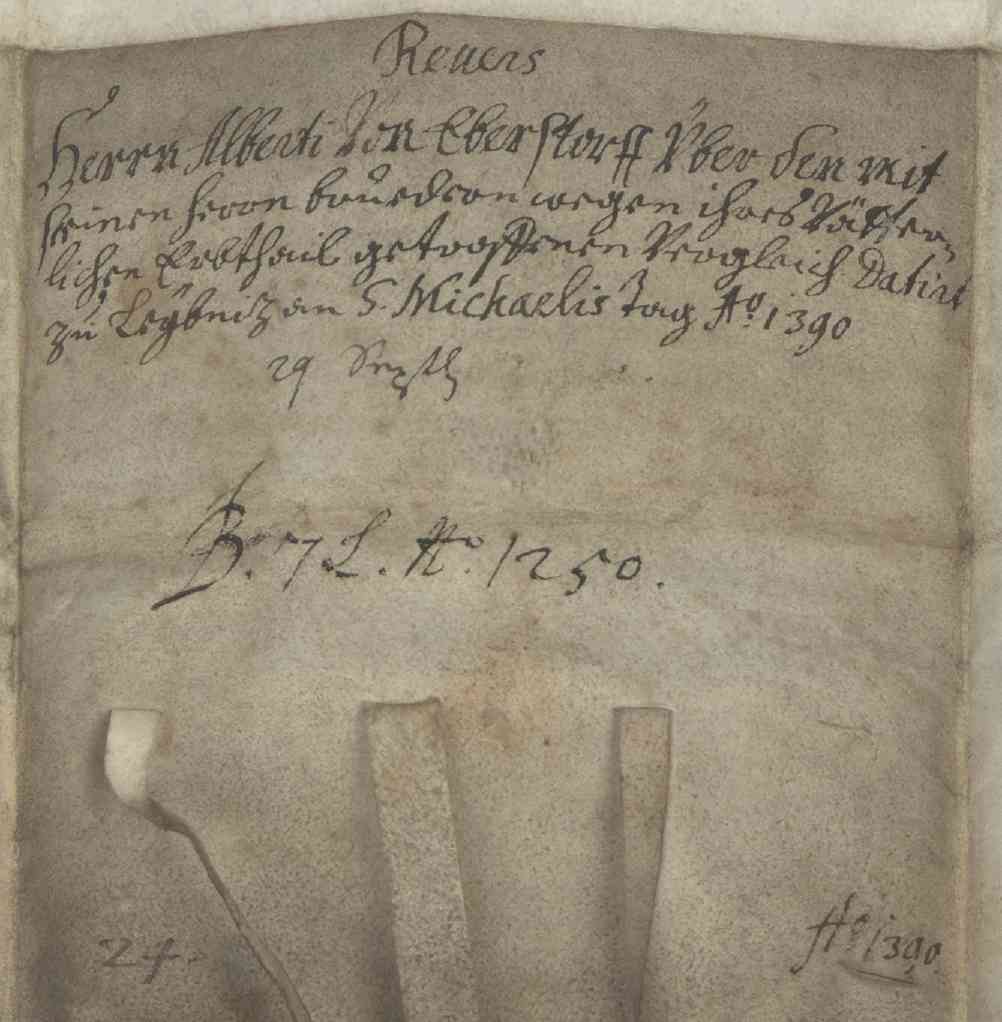 Reuers
Herrn Alberti Von Eberstorff Über den mit
seinen herrn bruedern wegen ihres Vätter-
lichen Erbthail getroffenen Vergleich Datirt
zu Leÿbnitz an S. Michaelis tag Aõ. 1390
29 Septb
B. 7 L. No. 1250.
24.
Aõ 1390